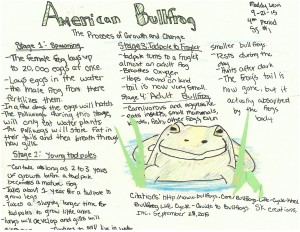 American Bullfrog
The Process of Growth and Change
Maddy
9-21-15
4th Period
Stage 1: Spawning
-The female frog lays up
to 20,000 eggs at once.
- Lays eggs in the water
- the male frog from there
fertilizes them.
- In a few days the eggs will hatch
will only eat water plants
- The Pollywogs will store fat in
their tails and then breath through
their gills.
Stage 2: Young tadpoles
- Can take as long as 2 to 3 years
of growth before a tadpole
becomes a mature frog
- Takes about 3 year for a tadpole to
grow legs
- Takes a slightly longer time for
tadpoles to grow little arms
- lungs will develop and gills will
Stage 3: Tadpole to Froglet
- tadpole turns to a froglet
almost an adult frog
- Breathes oxygen
- Hops around on land
- Tail is now very small.
Stage 4: Adult Bullfrog
- Carnivorous and aggressive
- Eats insects, small mammals,
fish, other frogs even
smaller bullfrogs
- Rests during the
day
- Hunts after dark
- The frog's tail is
now gone, but it
actually absorbed
by the frogs
body
Citations: http://www.bullfrogs.com/Bullfrog-Life-Cycle.html
Bullfrog Life Cycle - Guide to Bullfrogs. SK Creations
Inc. September 28, 2015